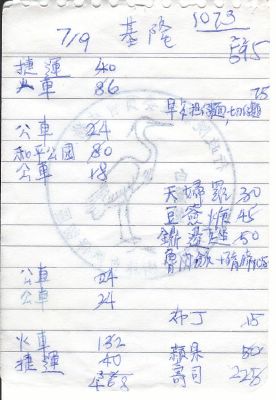 7/9 基隆 1073
595
捷運 40
火車 86
75
公車 24
和平公園 80
公車 18
天婦羅 30
豆簽焿 45
鼎邊趖 50
公車 24
公車 24
布丁 15
火車 132
捷運 40
468
蘋果 50
壽司 225